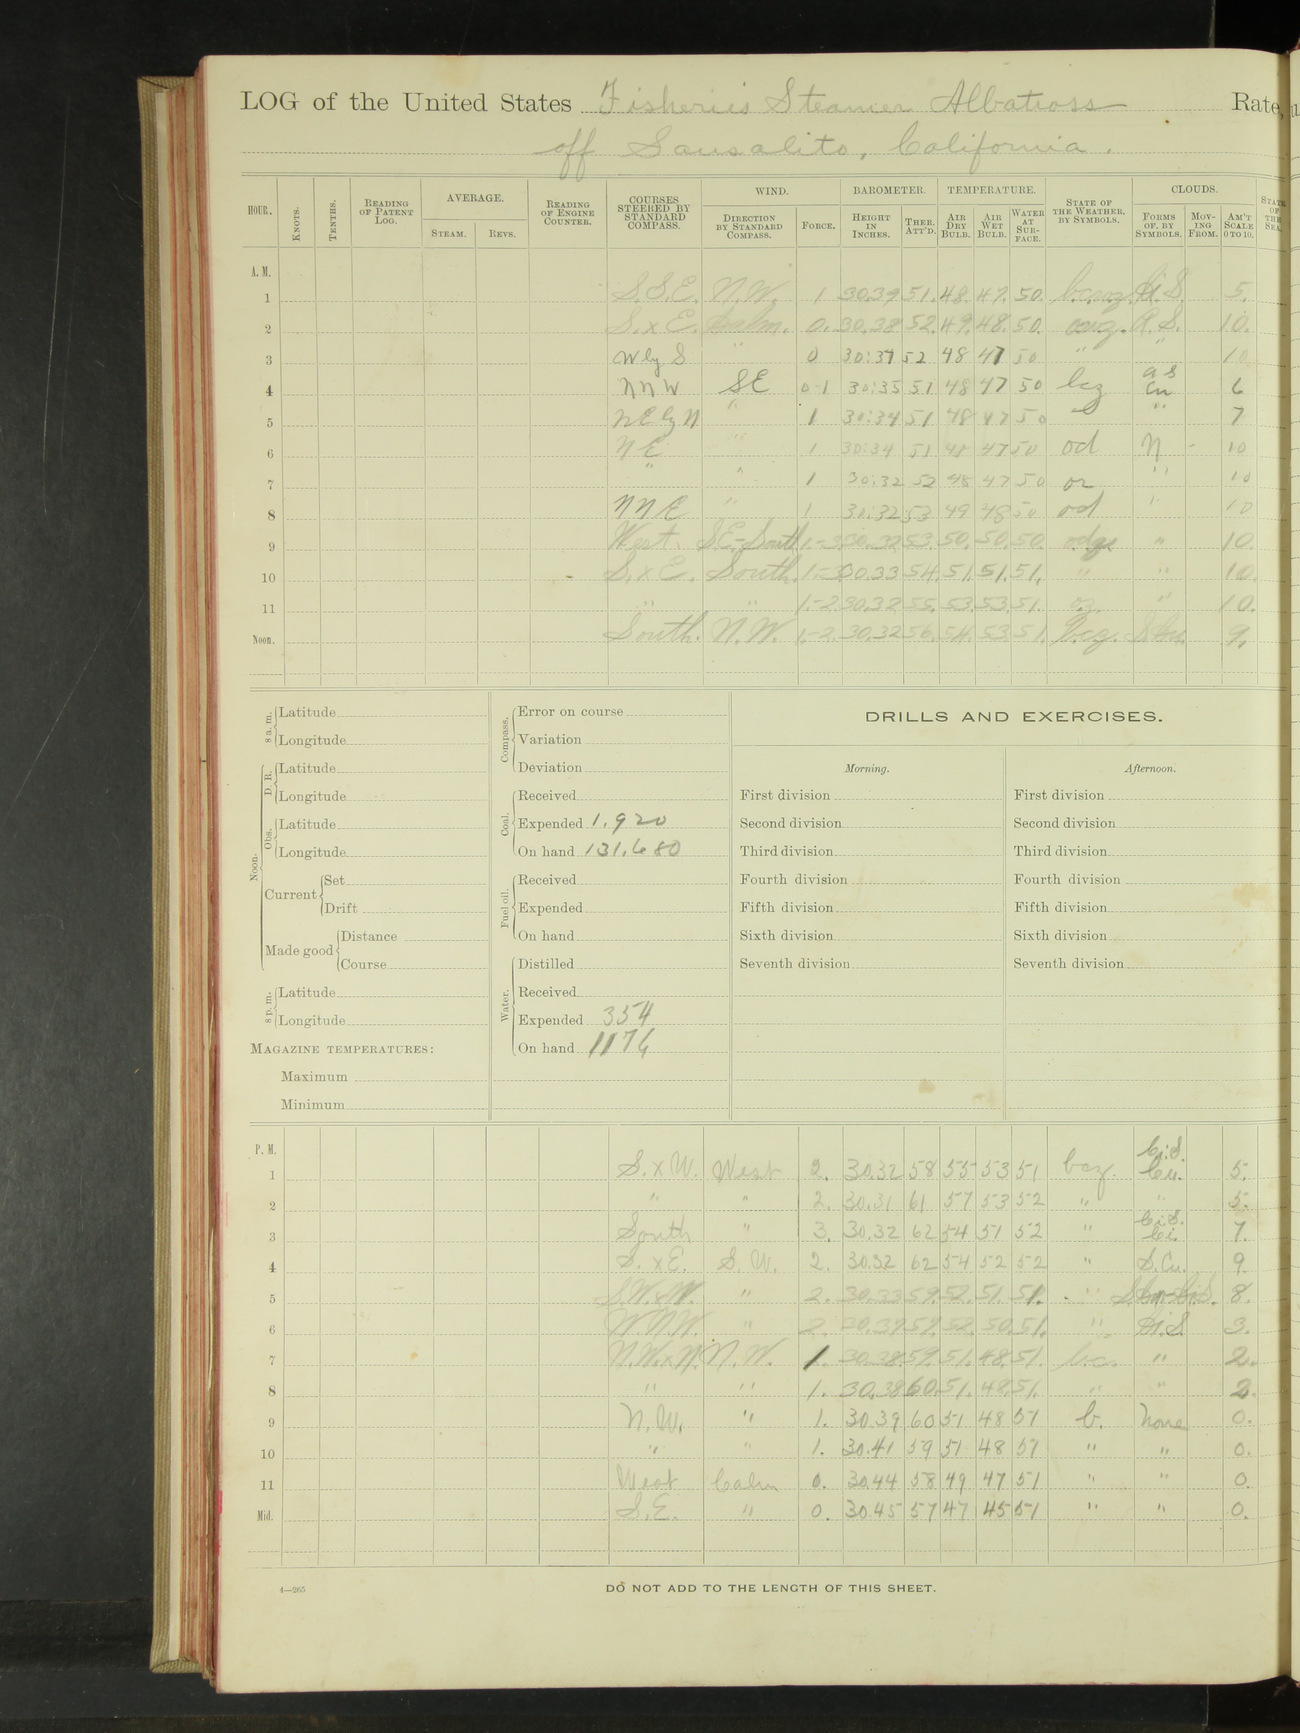 LOG of the United States Fisheries Steamer Albatross Rate,
off Sausalito, California.
HOUR. KNOTS. TENTHS. READING OF PATENT LOG. AVERAGE. STEAM. REVS. READING OF ENGINE COUNTER. COURSES STEERED BY STANDARD COMPASS. WIND. DIRECTION BY STANDARD COMPASS. FORCE. BAROMETER. HEIGHT IN INCHES. THER. ATT'D. TEMPERATURE. AIR DRY BULB. AIR WET BULB. WATER AT SURFACE. STATE OF THE WEATHER, BY SYMBOLS. CLOUDS. FORMS OF, BY SYMBOLS. MOVING FROM. AM'T SCALE 0 TO 10. STATE OF THE SEA.
A. M.
1 S.S.E. N.W. 1 30.39 51. 48. 47. 50. Ci.S. 5.
2 S.xE. Calm. 0. 30.38 52. 49. 48. 50. A.S. 10.
3 W ly S " 0 30:37 52 48 47 50 " " 10
4 NNW SE 0-1 30:35 51 48 47 50 bcz as cu 6
5 NE ly N " 1 30:34 51 48 47 50 " 7
6 NE " 1 30:34 51 48 47 50 od N - 10
7 " " 1 30:32 52 48 47 50 or " 10
8 NNE " 1 30:32 53 49 48 50 od " 10
9 West. SE-South 1.-3 30.32 53. 50. 50. 50. " 10.
10 S.xE. South. 1.-3 30.33 54. 51. 51. 51. " " 10.
11 " " 1.-2 30.32 55. 53. 53. 51. oz. " 10.
Noon. South. N.W. 1.-2. 30.32 56. 54. 53. 51. bcz. S.Cu. 9.
8 a. m. Latitude
Longitude
Noon. D. R. Latitude
Longitude
Obs. Latitude
Longitude
Current Set
Drift
Made good Distance
Course
8 p. m. Latitude
Longitude
MAGAZINE TEMPERATURES:
Maximum
Minimum
Compass. Error on course
Variation
Deviation
Coal. Received
Expended 1,920
On hand 131,680
Fuel oil. Received
Expended
On hand
Water. Distilled
Received
Expended 354
On hand 1176
DRILLS AND EXERCISES.
Morning. Afternoon.
First division First division
Second division Second division
Third division Third division
Fourth division Fourth division
Fifth division Fifth division
Sixth division Sixth division
Seventh division Seventh division
P. M.
1 S.xW. West 2. 30.32 58 55 53 51 bcz. Ci.S. Cu. 5.
2 " " 2. 30.31 61 57 53 52 " " 5.
3 South " 3. 30.32 62 54 51 52 " Ci.S. Ci. 7.
4 S.xE. S.W. 2. 30.32 62 54 52 52 " S.Cu. 9.
5 " 2. 30.33 59. 52. 51. 51. " 8.
6 W.N.W. " 2. 52. 50. 51. " Ci.S. 3.
7 N.W.xN. N.W. 1. 30.38 59. 51. 48. 51. bc. " 2.
8 " " 1. 30.38 60. 51. 48. 51. " " 2.
9 N.W. " 1. 30.39 60 51 48 51 b. None 0.
10 " " 1. 30.41 59 51 48 51 " " 0.
11 West Calm 0. 30.44 58 49 47 51 " " 0.
Mid. S.E. " 0. 30.45 57 47 45 51 " " 0.
4—265
DO NOT ADD TO THE LENGTH OF THIS SHEET.